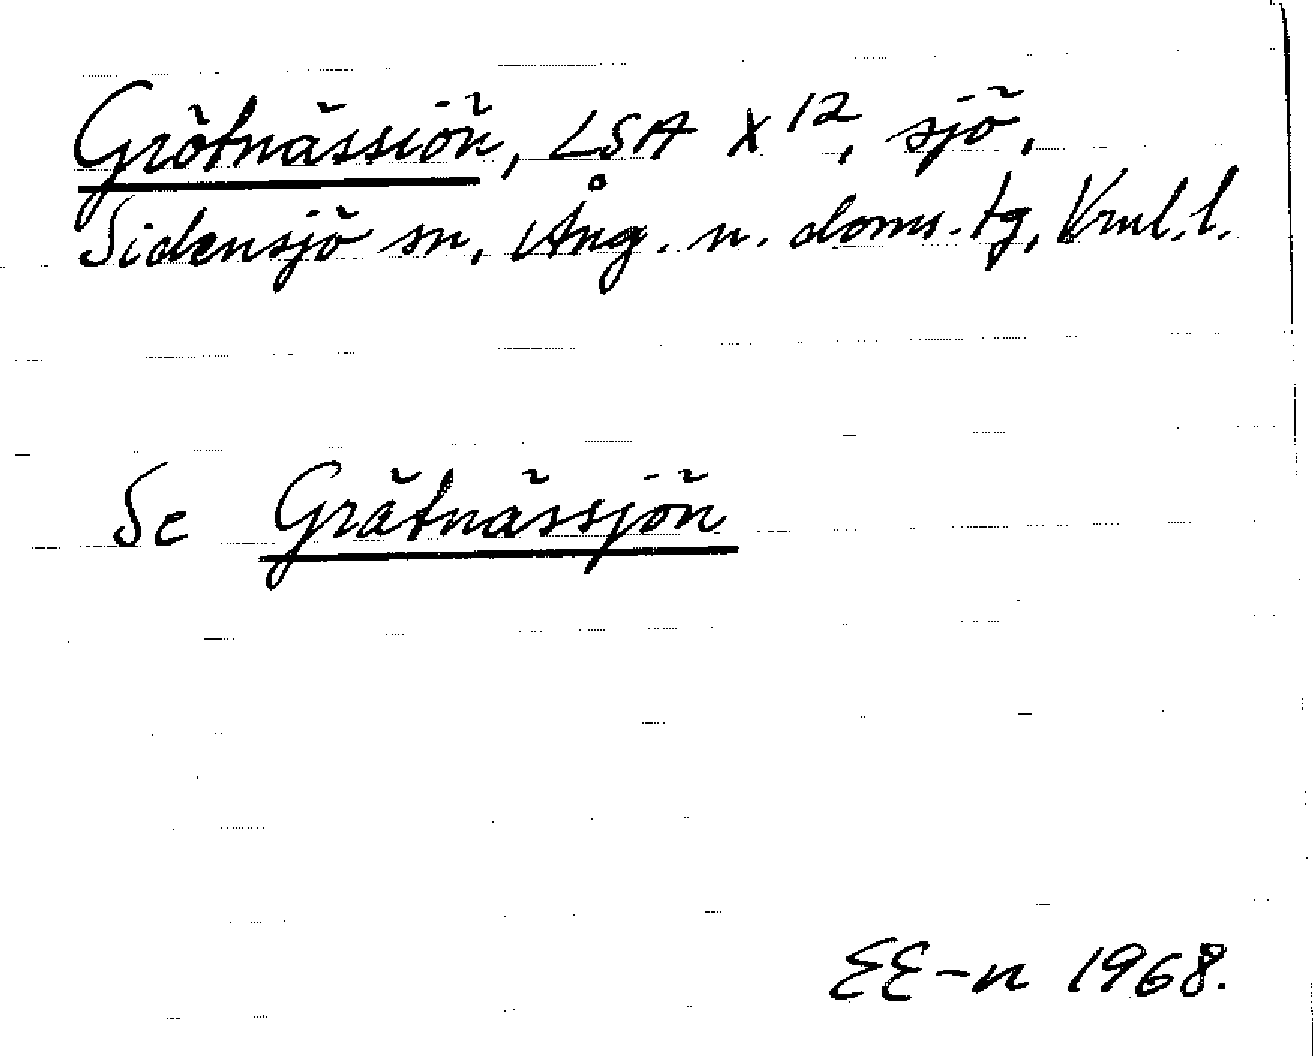 Grötnässiön, LSA X 12, sjö,
Sidensjö sn, Ång. n. doms. tg, Vnl. l.
Se Grätnässjön
EE-n 1968.